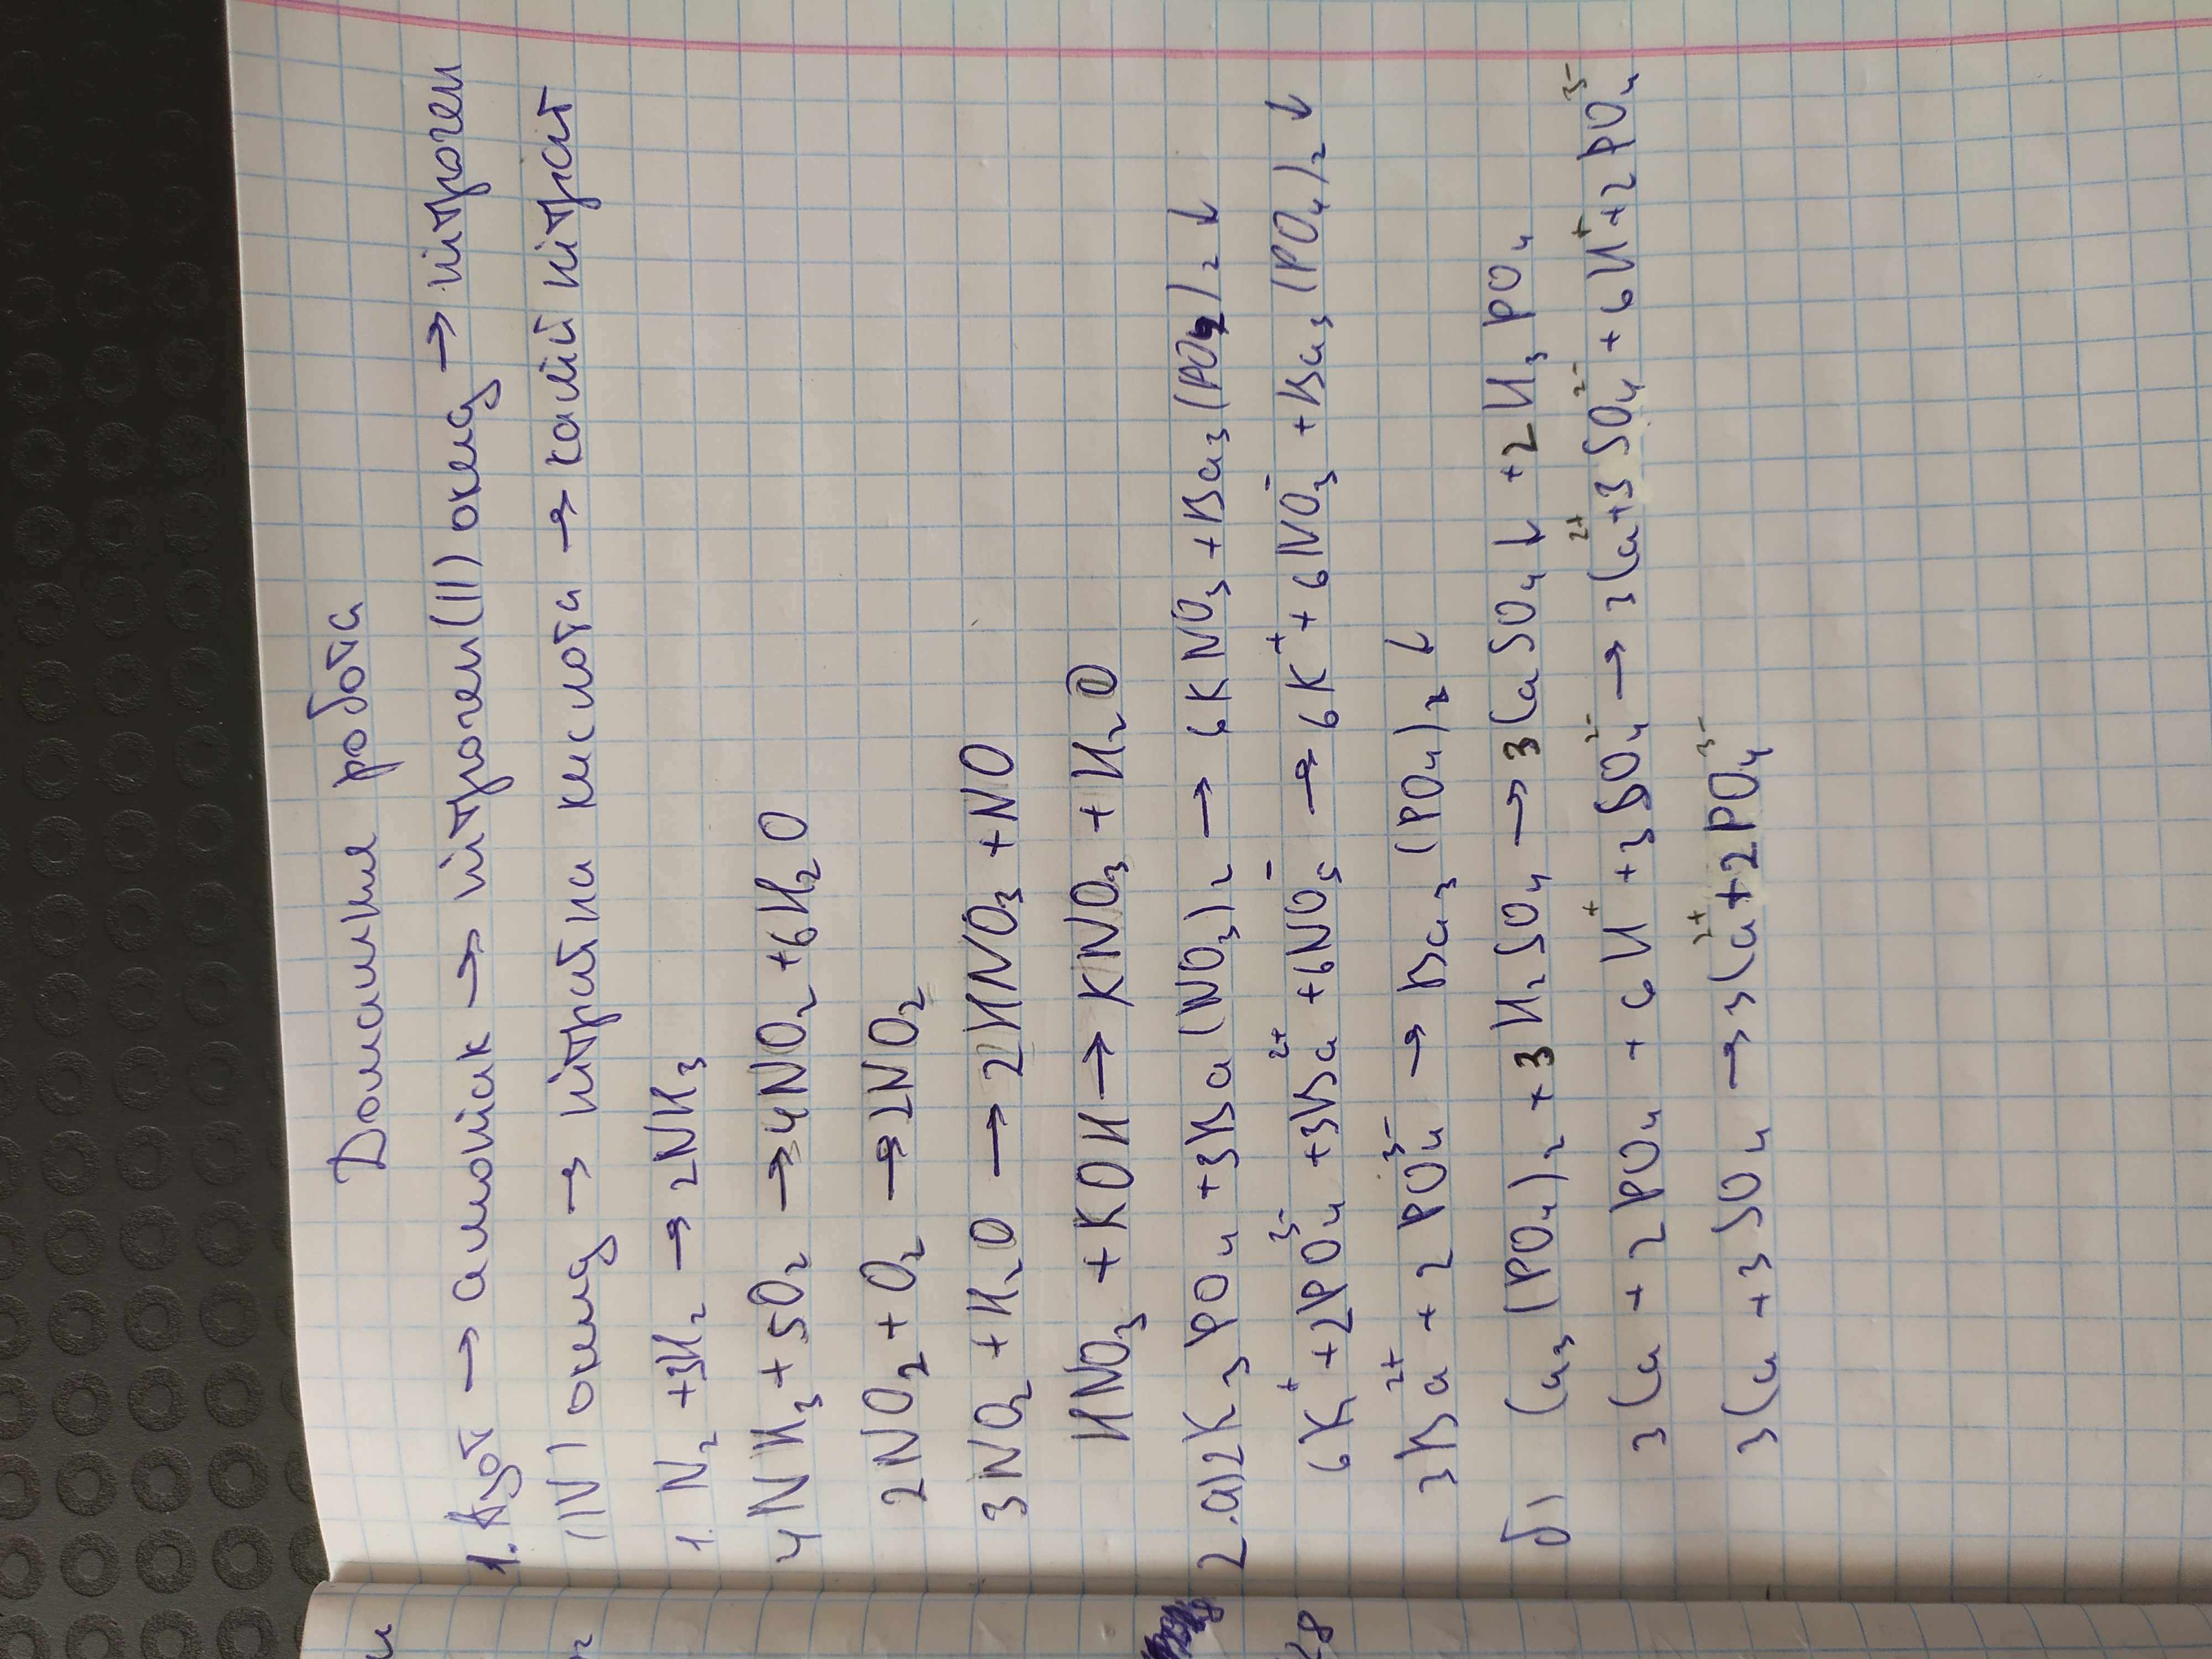 Домашнє робота
1. Азот → амоніак → нітроген(II) оксид → нітроген
(IV) оксид → нітратна кислота → калій нітрат
1. N₂ + 3H₂ → 2NH₃
4NH₃ + 5O₂ → 4NO₂ + 6H₂O
2NO₂ + O₂ → 2NO₂
3NO₂ + H₂O → 2HNO₃ + NO
HNO₃ + KOH → KNO₃ + H₂O
2.а) 2K₃PO₄ + 3Ba(NO₃)₂ → 6KNO₃ + Ba₃(PO₄)₂↓
6K⁺ + 2PO₄³⁻ + 3Ba²⁺ + 6NO₃⁻ → 6K⁺ + 6NO₃⁻ + Ba₃(PO₄)₂↓
3Ba²⁺ + 2PO₄³⁻ → Ba₃(PO₄)₂↓
б) Ca₃(PO₄)₂ + 3H₂SO₄ → 3CaSO₄↓ + 2H₃PO₄
3Ca + 2PO₄ + 6H⁺ + 3SO₄²⁻ → 3Ca²⁺ + 3SO₄²⁻ + 6H⁺ + 2PO₄³⁻
3Ca + 3SO₄ → 3Ca²⁺ + 2PO₄³⁻